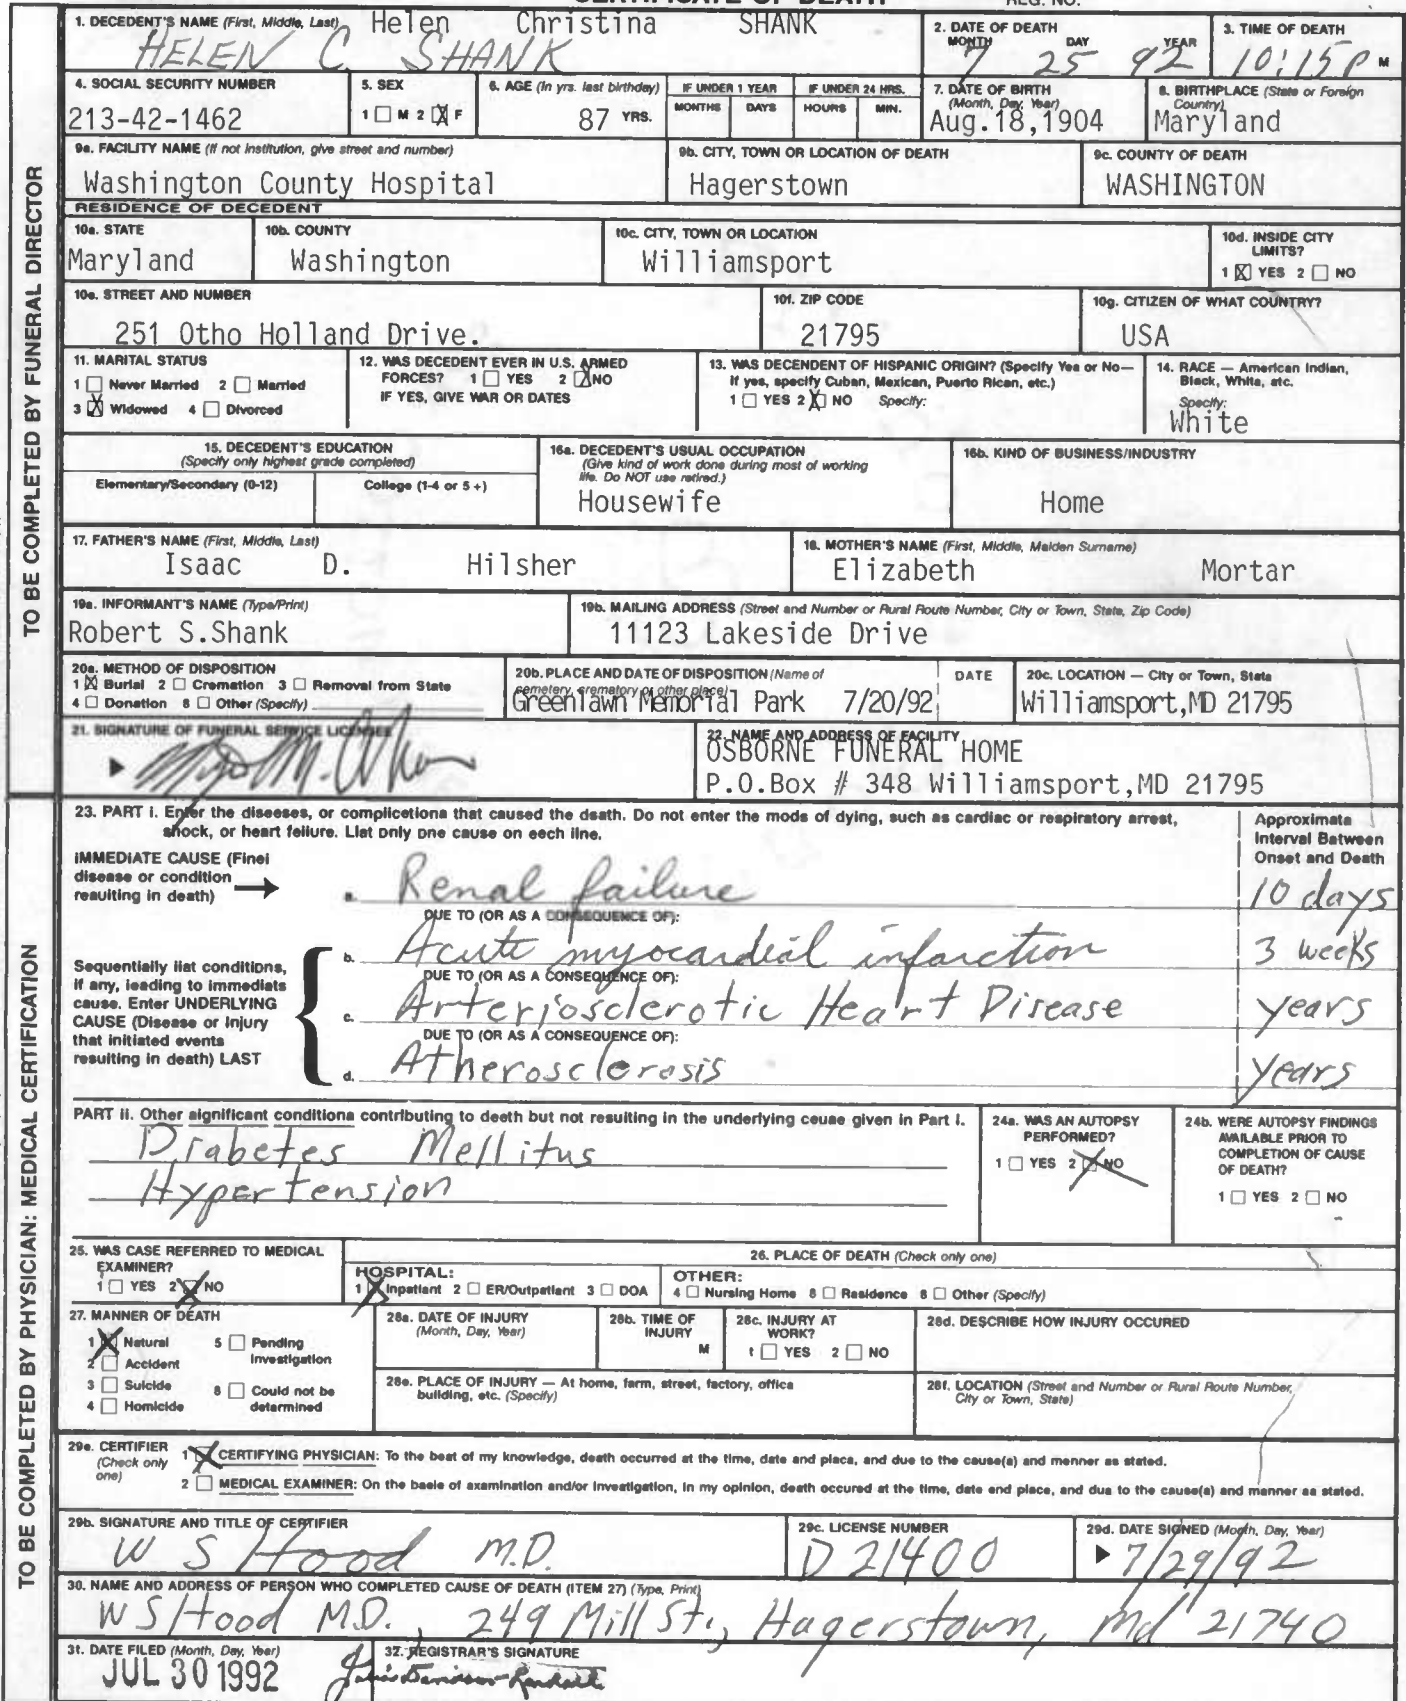 CERTIFICATE OF DEATH REG. NO.
TO BE COMPLETED BY FUNERAL DIRECTOR
1. DECEDENT'S NAME (First, Middle, Last) Helen Christina SHANK
HELEN C. SHANK
2. DATE OF DEATH
MONTH DAY YEAR
7 25 92
3. TIME OF DEATH
10:15 P M
4. SOCIAL SECURITY NUMBER
213-42-1462
5. SEX
1 ☐ M 2 ☒ F
6. AGE (In yrs. last birthday)
87 YRS.
IF UNDER 1 YEAR
MONTHS DAYS
IF UNDER 24 HRS.
HOURS MIN.
7. DATE OF BIRTH
(Month, Day, Year)
Aug.18,1904
8. BIRTHPLACE (State or Foreign
Country)
Maryland
9a. FACILITY NAME (If not institution, give street and number)
Washington County Hospital
9b. CITY, TOWN OR LOCATION OF DEATH
Hagerstown
9c. COUNTY OF DEATH
WASHINGTON
RESIDENCE OF DECEDENT
10a. STATE
Maryland
10b. COUNTY
Washington
10c. CITY, TOWN OR LOCATION
Williamsport
10d. INSIDE CITY
LIMITS?
1 ☒ YES 2 ☐ NO
10e. STREET AND NUMBER
251 Otho Holland Drive.
10f. ZIP CODE
21795
10g. CITIZEN OF WHAT COUNTRY?
USA
11. MARITAL STATUS
1 ☐ Never Married 2 ☐ Married
3 ☒ Widowed 4 ☐ Divorced
12. WAS DECEDENT EVER IN U.S. ARMED
FORCES? 1 ☐ YES 2 ☒ NO
IF YES, GIVE WAR OR DATES
13. WAS DECENDENT OF HISPANIC ORIGIN? (Specify Yes or No—
If yes, specify Cuban, Mexican, Puerto Rican, etc.)
1 ☐ YES 2 ☒ NO Specify:
14. RACE — American Indian,
Black, White, etc.
Specify:
White
15. DECEDENT'S EDUCATION
(Specify only highest grade completed)
Elementary/Secondary (0-12) College (1-4 or 5+)
16a. DECEDENT'S USUAL OCCUPATION
(Give kind of work done during most of working
life. Do NOT use retired.)
Housewife
16b. KIND OF BUSINESS/INDUSTRY
Home
17. FATHER'S NAME (First, Middle, Last)
Isaac D. Hilsher
18. MOTHER'S NAME (First, Middle, Maiden Surname)
Elizabeth Mortar
19a. INFORMANT'S NAME (Type/Print)
Robert S.Shank
19b. MAILING ADDRESS (Street and Number or Rural Route Number, City or Town, State, Zip Code)
11123 Lakeside Drive
20a. METHOD OF DISPOSITION
1 ☒ Burial 2 ☐ Cremation 3 ☐ Removal from State
4 ☐ Donation 8 ☐ Other (Specify)
20b. PLACE AND DATE OF DISPOSITION (Name of
cemetery, crematory or other place)
DATE
Greenlawn Memorial Park 7/20/92
20c. LOCATION — City or Town, State
Williamsport,MD 21795
21. SIGNATURE OF FUNERAL SERVICE LICENSEE
22. NAME AND ADDRESS OF FACILITY
OSBORNE FUNERAL HOME
P.O.Box # 348 Williamsport,MD 21795
TO BE COMPLETED BY PHYSICIAN: MEDICAL CERTIFICATION
23. PART I. Enter the diseases, or complications that caused the death. Do not enter the mode of dying, such as cardiac or respiratory arrest,
shock, or heart failure. List only one cause on each line.
Approximate
Interval Between
Onset and Death
IMMEDIATE CAUSE (Final
disease or condition
resulting in death) →
a. Renal failure 10 days
DUE TO (OR AS A CONSEQUENCE OF):
b. Acute myocardial infarction 3 weeks
DUE TO (OR AS A CONSEQUENCE OF):
Sequentially list conditions,
if any, leading to immediate
cause. Enter UNDERLYING
CAUSE (Disease or injury
that initiated events
resulting in death) LAST
c. Arteriosclerotic Heart Disease years
DUE TO (OR AS A CONSEQUENCE OF):
d. Atherosclerosis years
PART II. Other significant conditions contributing to death but not resulting in the underlying cause given in Part I.
Diabetes Mellitus
Hypertension
24a. WAS AN AUTOPSY
PERFORMED?
1 ☐ YES 2 ☒ NO
24b. WERE AUTOPSY FINDINGS
AVAILABLE PRIOR TO
COMPLETION OF CAUSE
OF DEATH?
1 ☐ YES 2 ☐ NO
25. WAS CASE REFERRED TO MEDICAL
EXAMINER?
1 ☐ YES 2 ☒ NO
26. PLACE OF DEATH (Check only one)
HOSPITAL:
1 ☒ Inpatient 2 ☐ ER/Outpatient 3 ☐ DOA
OTHER:
4 ☐ Nursing Home 8 ☐ Residence 8 ☐ Other (Specify)
27. MANNER OF DEATH
1 ☒ Natural 5 ☐ Pending
Investigation
2 ☐ Accident
3 ☐ Suicide 8 ☐ Could not be
determined
4 ☐ Homicide
28a. DATE OF INJURY
(Month, Day, Year)
28b. TIME OF
INJURY
M
28c. INJURY AT
WORK?
1 ☐ YES 2 ☐ NO
28d. DESCRIBE HOW INJURY OCCURED
28e. PLACE OF INJURY — At home, farm, street, factory, office
building, etc. (Specify)
28f. LOCATION (Street and Number or Rural Route Number,
City or Town, State)
29a. CERTIFIER
(Check only
one)
1 ☒ CERTIFYING PHYSICIAN: To the best of my knowledge, death occurred at the time, date and place, and due to the cause(s) and manner as stated.
2 ☐ MEDICAL EXAMINER: On the basis of examination and/or investigation, in my opinion, death occured at the time, date and place, and due to the cause(s) and manner as stated.
29b. SIGNATURE AND TITLE OF CERTIFIER
W S Hood M.D.
29c. LICENSE NUMBER
D 21400
29d. DATE SIGNED (Month, Day, Year)
7/29/92
30. NAME AND ADDRESS OF PERSON WHO COMPLETED CAUSE OF DEATH (ITEM 27) (Type, Print)
W S Hood M.D., 249 Mill St., Hagerstown, Md 21740
31. DATE FILED (Month, Day, Year)
JUL 30 1992
32. REGISTRAR'S SIGNATURE